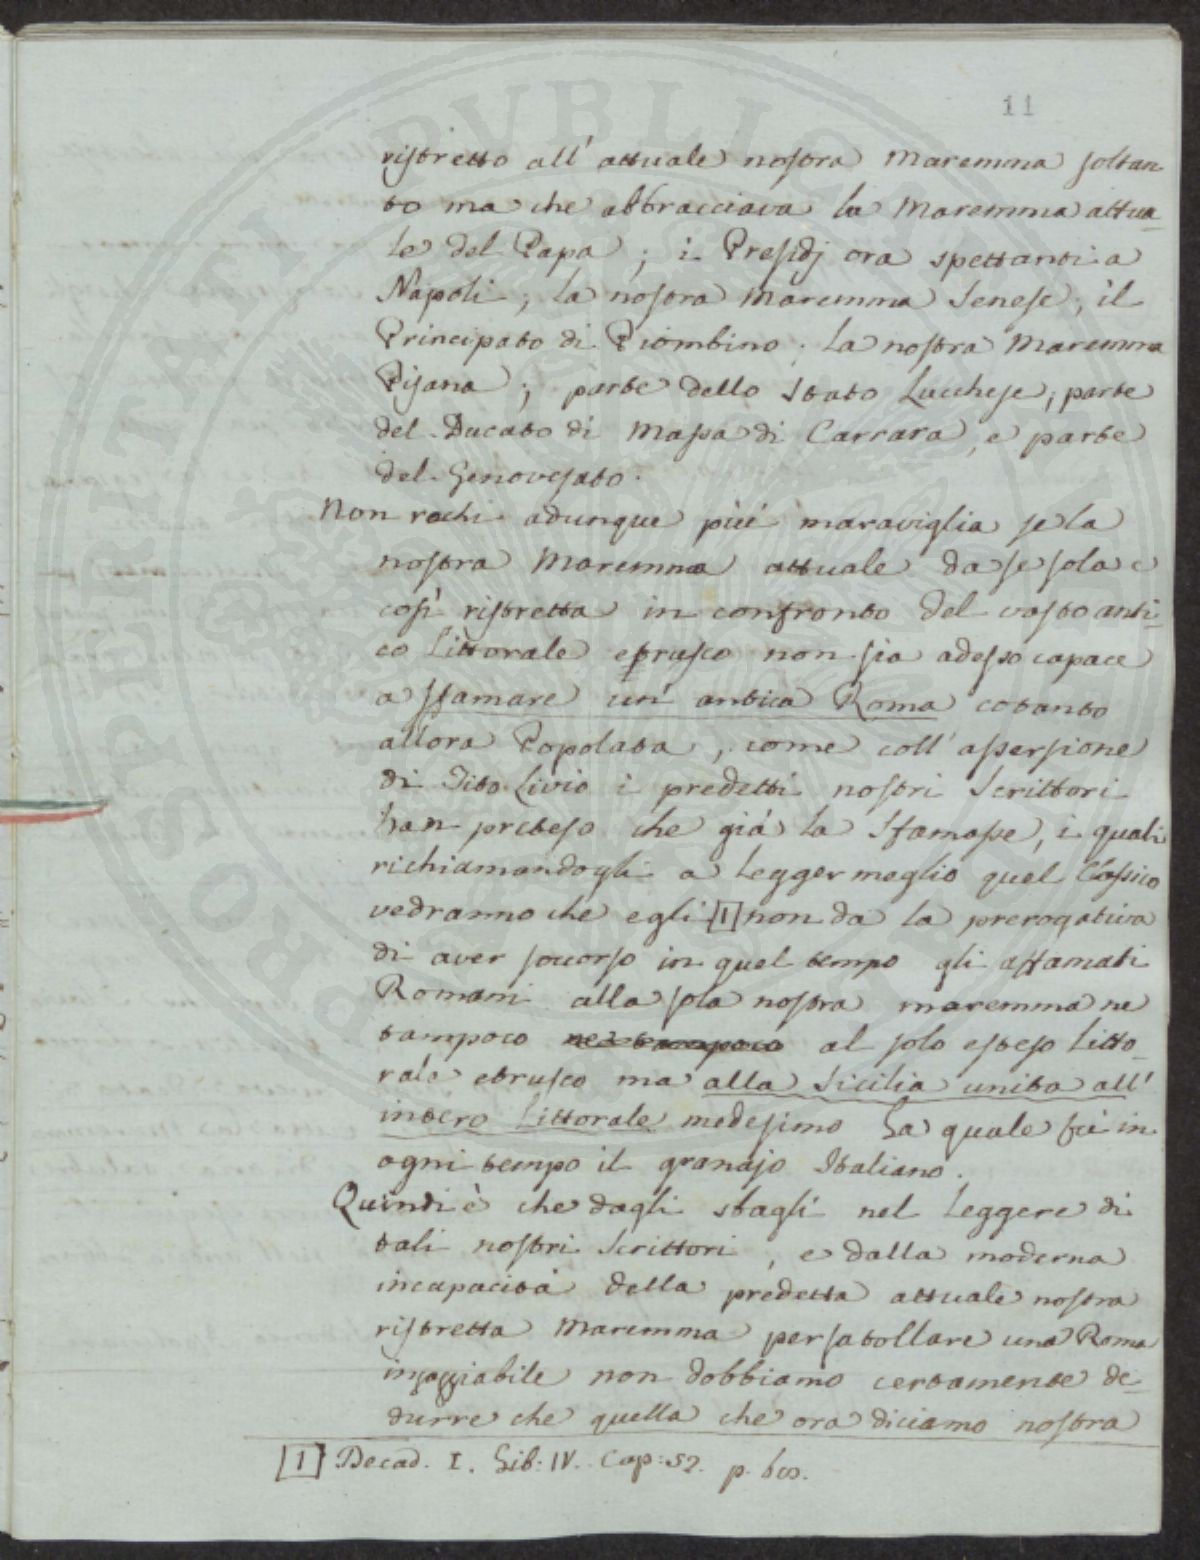 11
ristretto all' attuale nostra Maremma soltan
to ma che abbracciava la Maremma attua-
le del Papa ; i Presidj ora spettanti a
Napoli ; la nostra Maremma Senese ; il
Principato di Piombino ; la nostra Maremma
Pisana ; parte dello Stato Lucchese ; parte
del Ducato di Massa di Carrara, e parte
del Genovesato.
Non rechi adunque più maraviglia se la
nostra Maremma attuale da se sola e
così ristretta in confronto del vasto anti-
co Littorale etrusco non sia adesso capace
a sfamare un' antica Roma cotanto
allora Popolata , come coll' assersione
di Tito Livio i predetti nostri Scrittori
han preteso che già la Sfamasse, i quali
richiamandogli a legger meglio quel Classico
vedranno che egli [1] non da la prerogativa
di aver soccorso in quel tempo gli affamati
Romani alla sola nostra maremma ne
tampoco ne tampoco al solo esteso Litto-
rale etrusco ma alla Sicilia unita all'
intero Littorale medesimo La quale fù in
ogni tempo il granajo Italiano.
Quindi è che dagli sbagli nel leggere di
tali nostri Scrittori , e dalla moderna
incapacità della predetta attuale nostra
ristretta Maremma per satollare una Roma
insaziabile non dobbiamo certamente de-
durre che quella che ora diciamo nostra
[1] Decad. I. Lib: IV. Cap: 52.
PROSPERITATI PUBLICAE